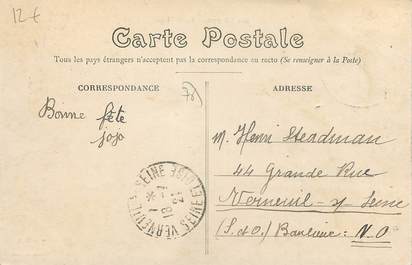 12€
Carte Postale
Tous les pays étrangers n'acceptent pas la correspondance au recto (Se renseigner à la Poste)
CORRESPONDANCE
78
ADRESSE
Bonne fête
jojo
M. Henri Steadman
44 Grande Rue
Verneuil s/ Seine
(S. et O.) Banlieue: N.O
SEINE ET OISE
VERNEUIL S SEINE